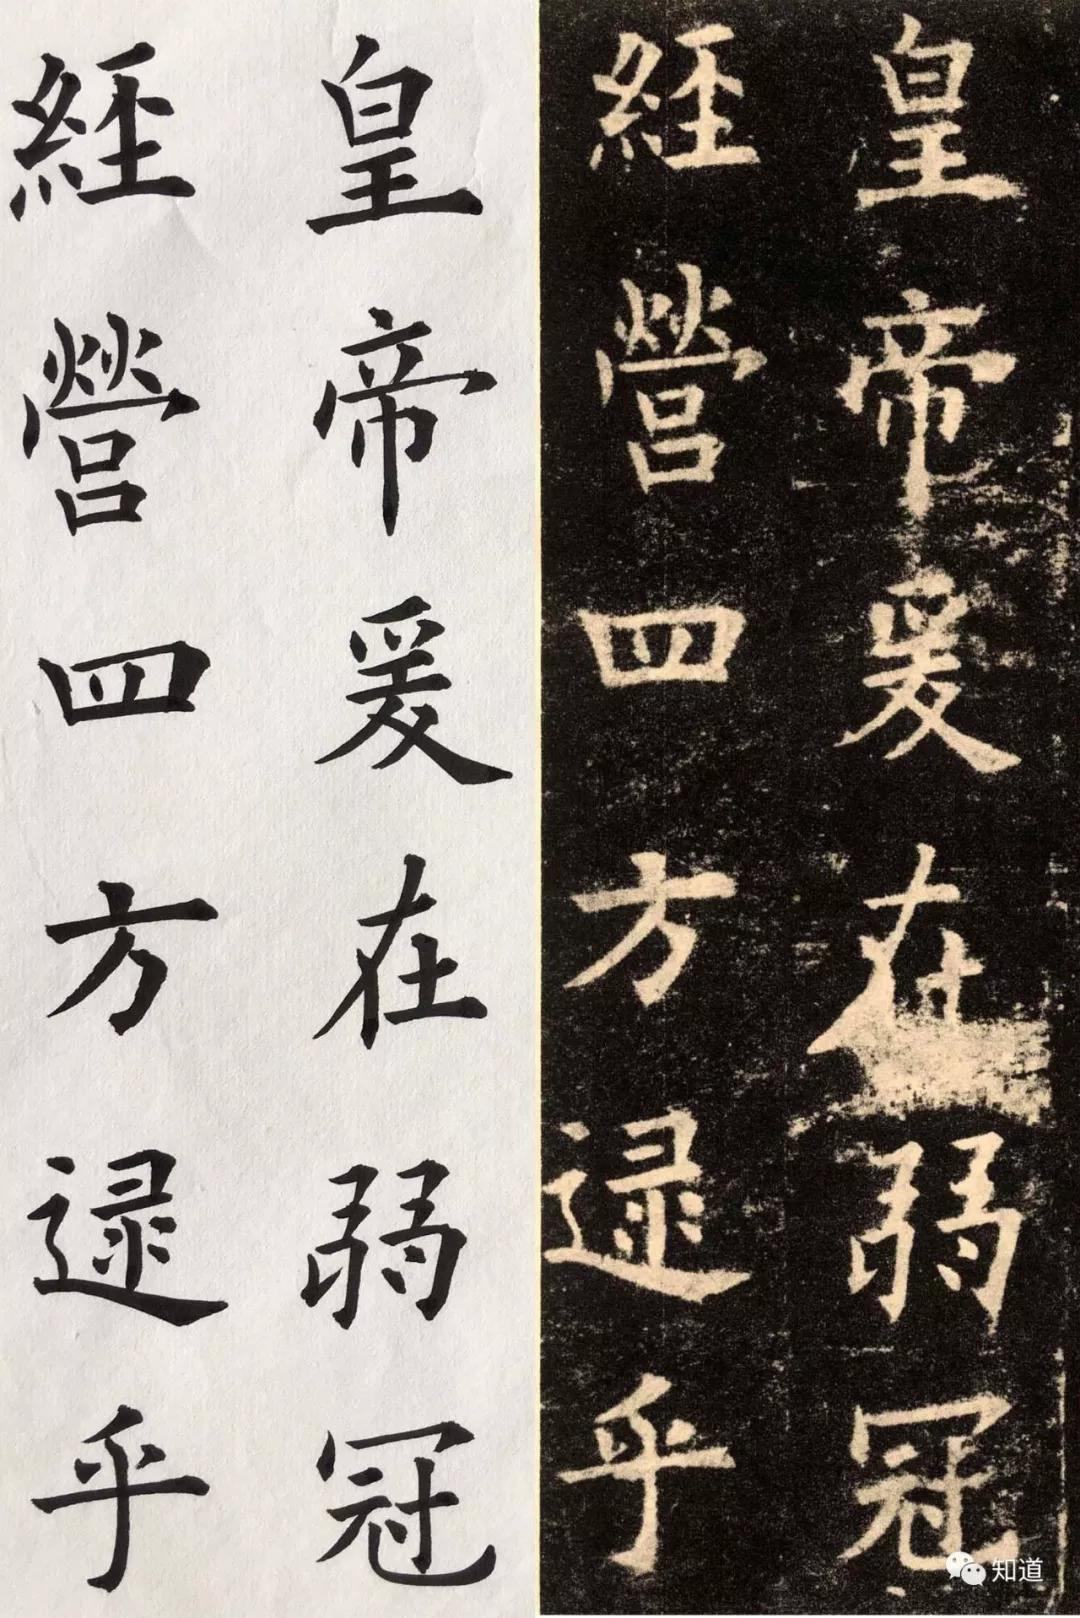 皇帝爰在弱冠
經營四方逯乎
皇帝爰在弱冠
經營四方逯乎
知道